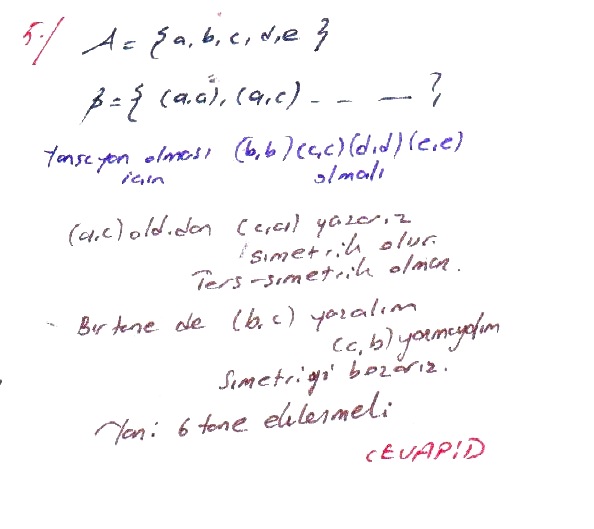 5-/ A = {a, b, c, d, e}
β = { (a,a), (a,c) - - - }
Yansıyan olması (b,b) (c,c) (d,d) (e,e)
için olmalı
(a,c) old.dan (c,a) yazarız
simetrik olur.
Ters-simetrik olmaz.
- Bir tane de (b,c) yazalım
(c,b) yazmayalım
Simetriyi bozarız.
Yani 6 tane eklenmeli
CEVAP: D